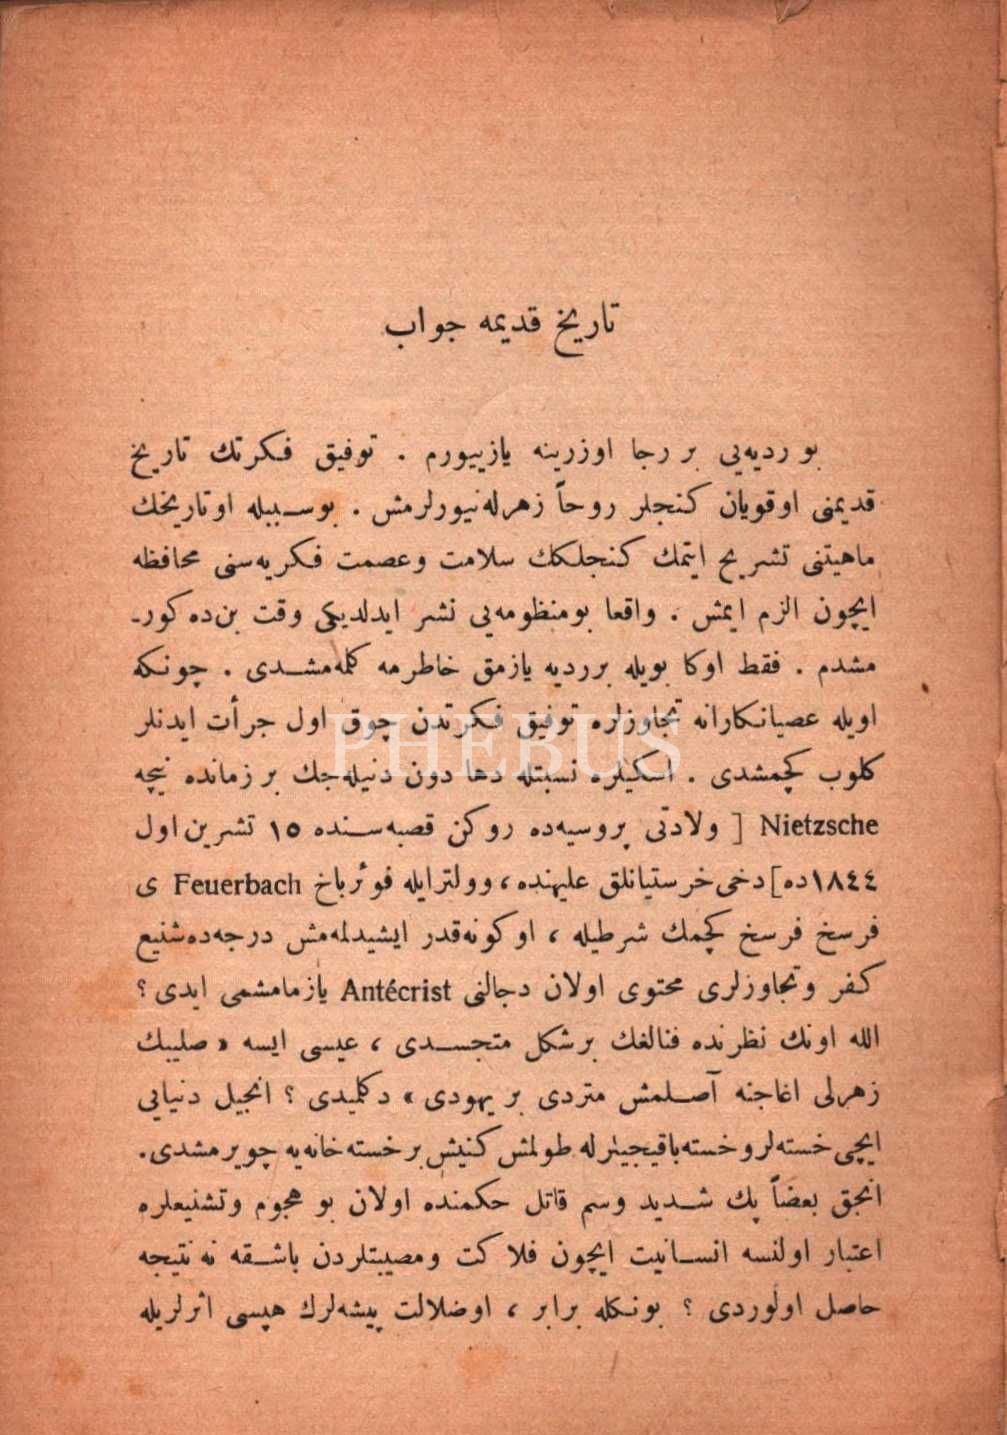 تاريخ قديمه جواب
بو رديه‌يى بر رجا اوزرينه يازييورم . توفيق فكرتك تاريخ
قديمنى اوقويان كنجلر روحاً زهرله‌نيورلرمش . بوسببله اوتاريخك
ماهيتنى تشريح ايتمك كنجلكك سلامت وعصمت فكريه‌سنى محافظه
ايچون الزم ايمش . واقعا بومنظومه‌يى نشر ايدلديكى وقت بن‌ده كور-
مشدم . فقط اوكا بويله بررديه يازمق خاطرمه كلمه‌مشدى . چونكه
اويله عصيانكارانه تجاوزلره توفيق فكرتدن چوق اول جرأت ايدنلر
كلوب كچمشدى . اسكيلره نسبتله دها دون دنيله‌جك بر زمانده نيچه
Nietzsche [ ولادتى پروسيه‌ده روكن قصبه‌سنده ١٥ تشرين اول
١٨٤٤ده] دخى خرستيانلق عليهنده ، وولترايله فوئرباخ Feuerbach ى
فرسخ فرسخ كچمك شرطيله ، اوكونه‌قدر ايشيدلمه‌مش درجه‌ده‌شنيع
كفر وتجاوزلرى محتوى اولان دجالنى Antécrist يازمامشمى ايدى ؟
الله اونك نظرنده فنالغك برشكل متجسدى ، عيسى ايسه « صليبك
زهرلى اغاجنه آصلمش متردى بر يهودى » دكلميدى ؟ انجيل دنيايى
ايچى خسته‌لر و خسته‌باقيجيلرله طولمش كنيش برخسته‌خانه‌يه چويرمشدى.
انجق بعضاً پك شديد وسم قاتل حكمنده اولان بو هجوم وتشنيعلره
اعتبار اولنسه انسانيت ايچون فلاكت ومصيبتلردن باشقه نه نتيجه
حاصل اولوردى ؟ بونكله برابر ، اوضلالت پيشه‌لرك هپسى اثرلريله
PHEBUS